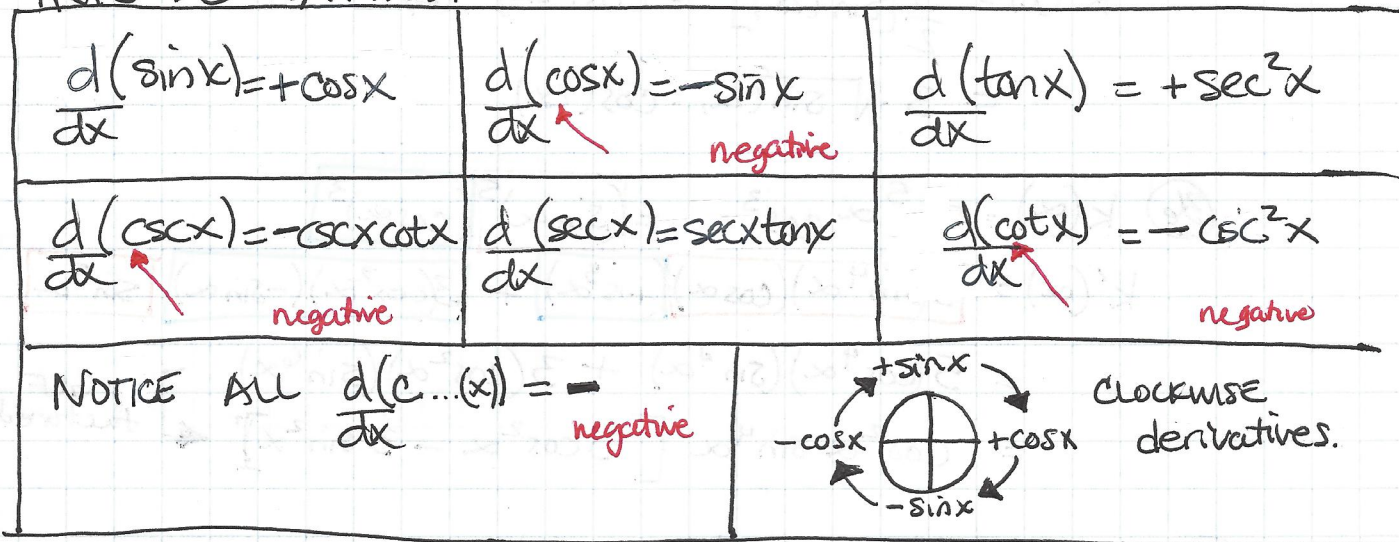 d/dx (sinx) = +cosx
d/dx (cosx) = -sinx
negative
d/dx (tanx) = +sec²x
d/dx (cscx) = -cscxcotx
negative
d/dx (secx) = secxtanx
d/dx (cotx) = -csc²x
negative
NOTICE ALL d/dx (c...(x)) = -
negative
+sinx
-cosx +cosx
-sinx
CLOCKWISE
derivatives.